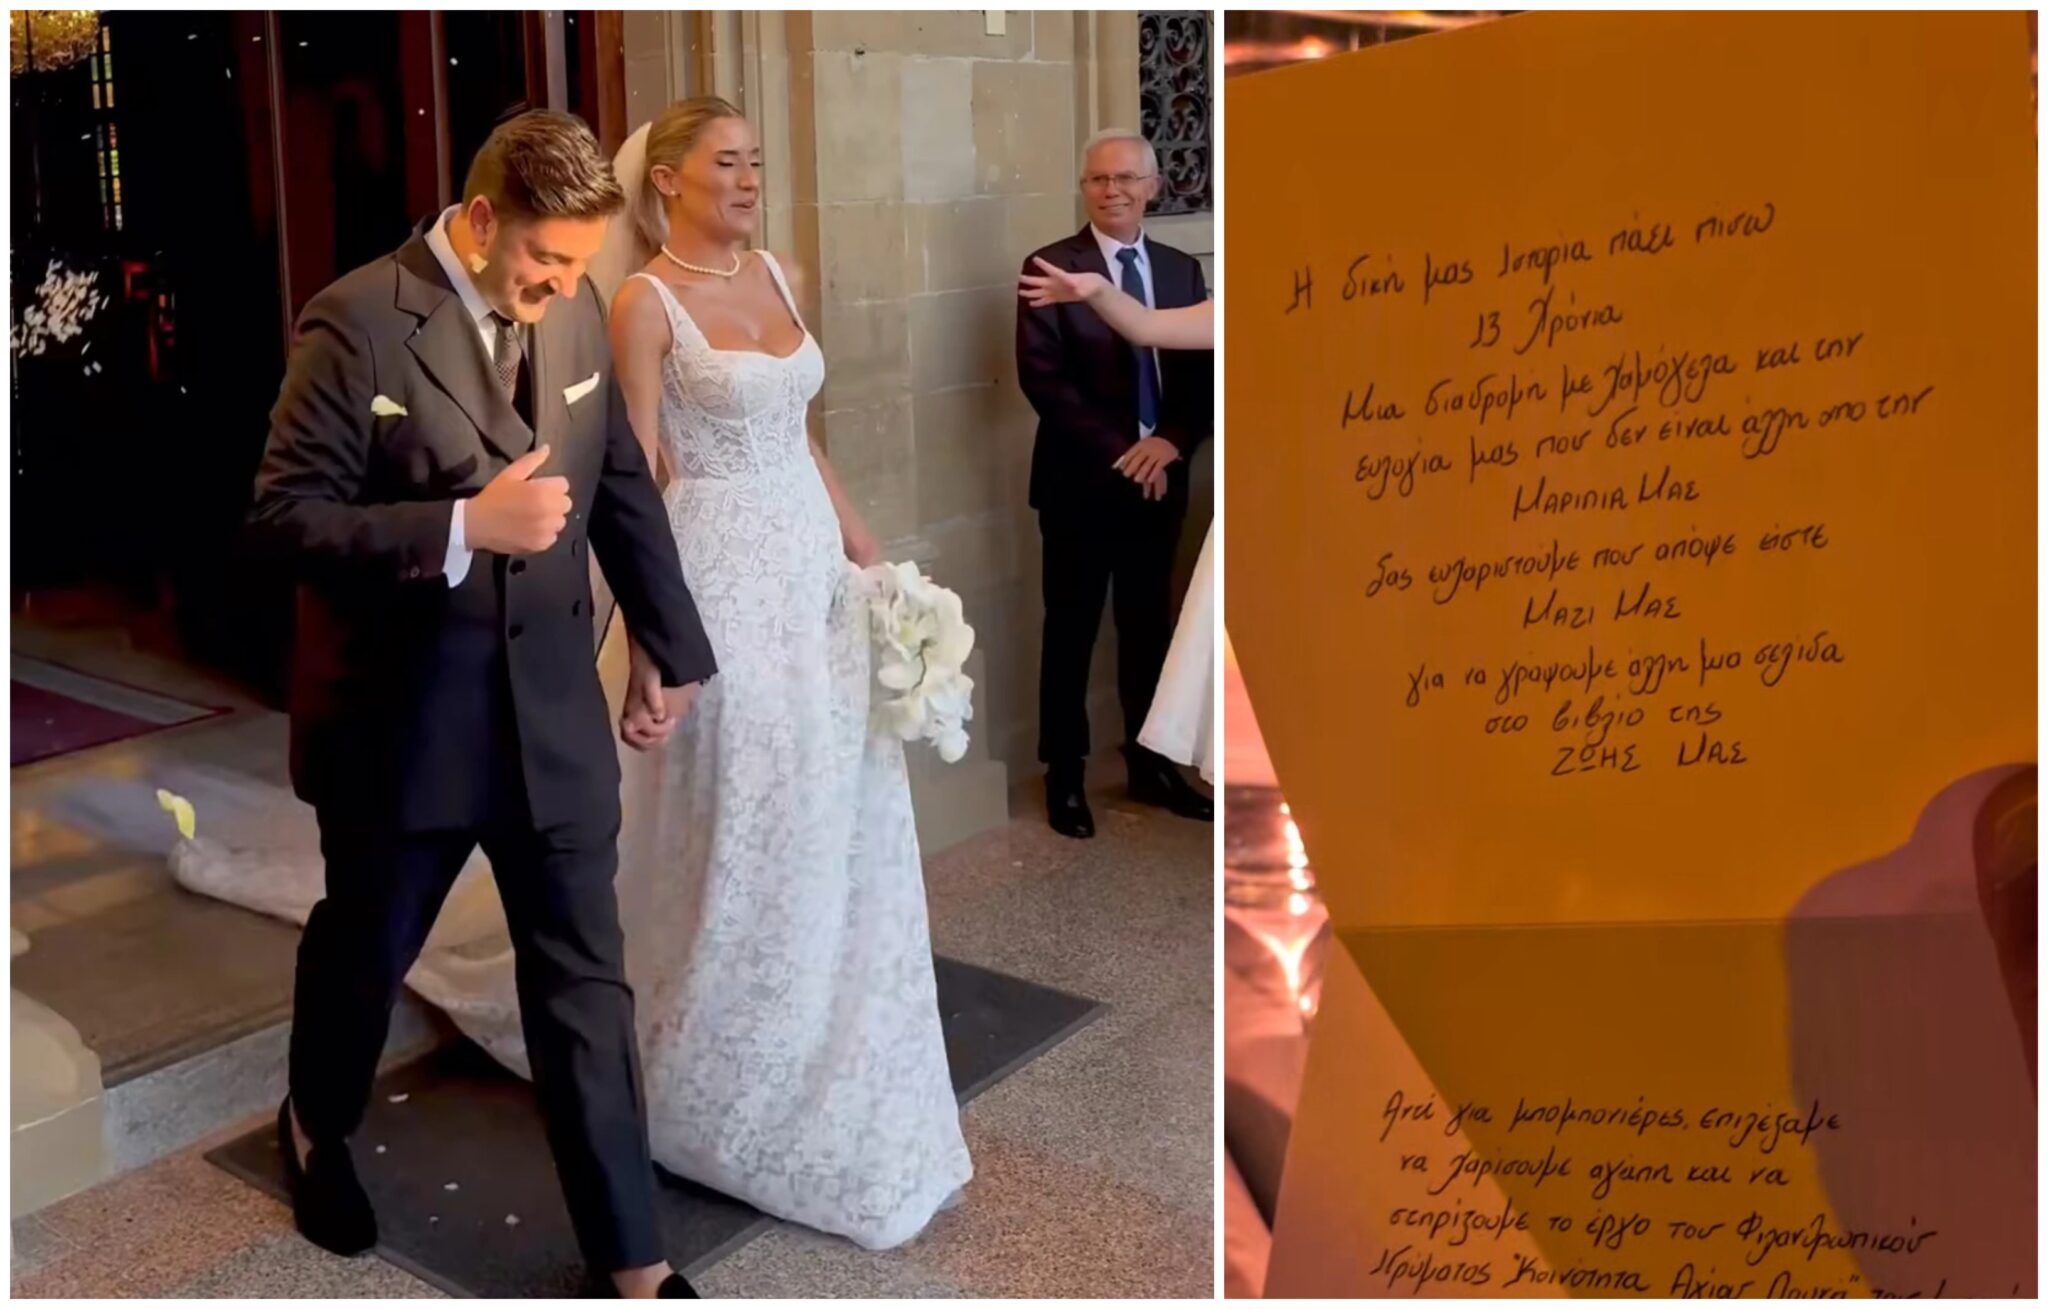 Η δική μας Ιστορία πάει πίσω
13 Χρόνια
Μια διαδρομή με χαμόγελα και την
ευλογία μας που δεν είναι άλλη απο την
ΜΑΡΙΛΙΑ ΜΑΣ
Σας ευχαριστούμε που απόψε είστε
ΜΑΖΙ ΜΑΣ
για να γράψουμε άλλη μια σελίδα
στο βιβλίο της
ΖΩΗΣ ΜΑΣ
Αντί για μπομπονιέρες, επιλέξαμε
να χαρίσουμε αγάπη και να
στηρίξουμε το έργο του Φιλανθρωπικού
Ιδρύματος "Κοινότητα Αγίας